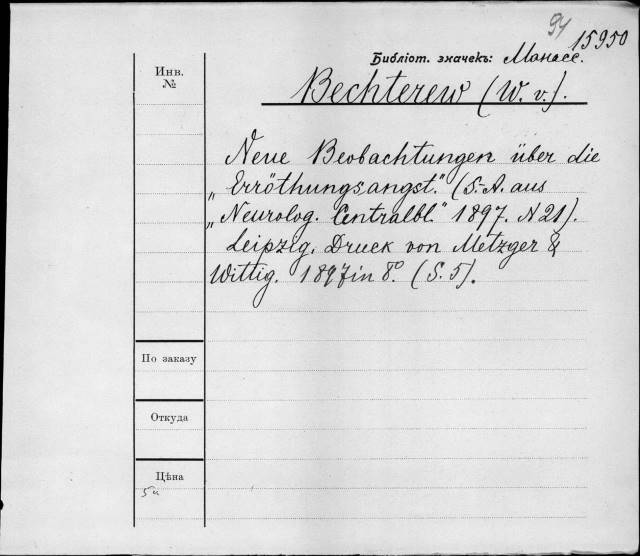 94
15950
Библіот. значекъ: Манасс.
Инв.
№
Bechterew (W. v.).
Neue Beobachtungen über die
„Erröthungsangst." (S.-A. aus
„Neurolog. Centralbl." 1897. N 21).
Leipzig, Druck von Metzger &
Wittig. 1897 in 8°. (S. 5).
По заказу
Откуда
Цѣна